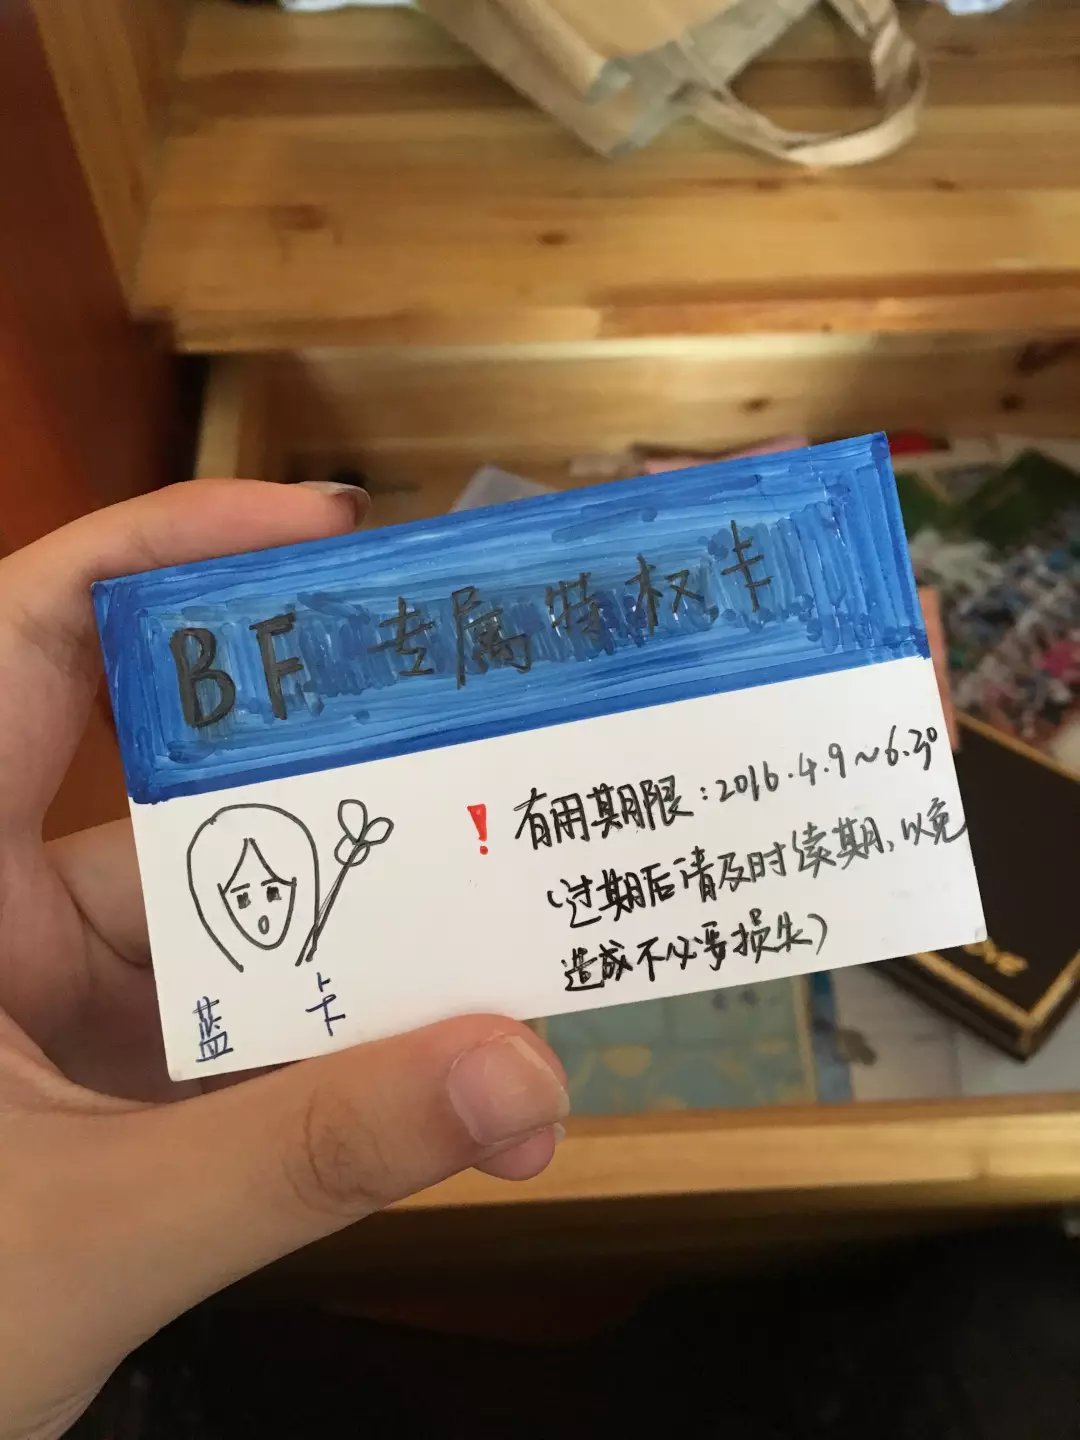 BF 专属特权卡
！有用期限：2016.4.9~6.30
（过期后请及时续期、以免
造成不必要损失）
蓝 卡